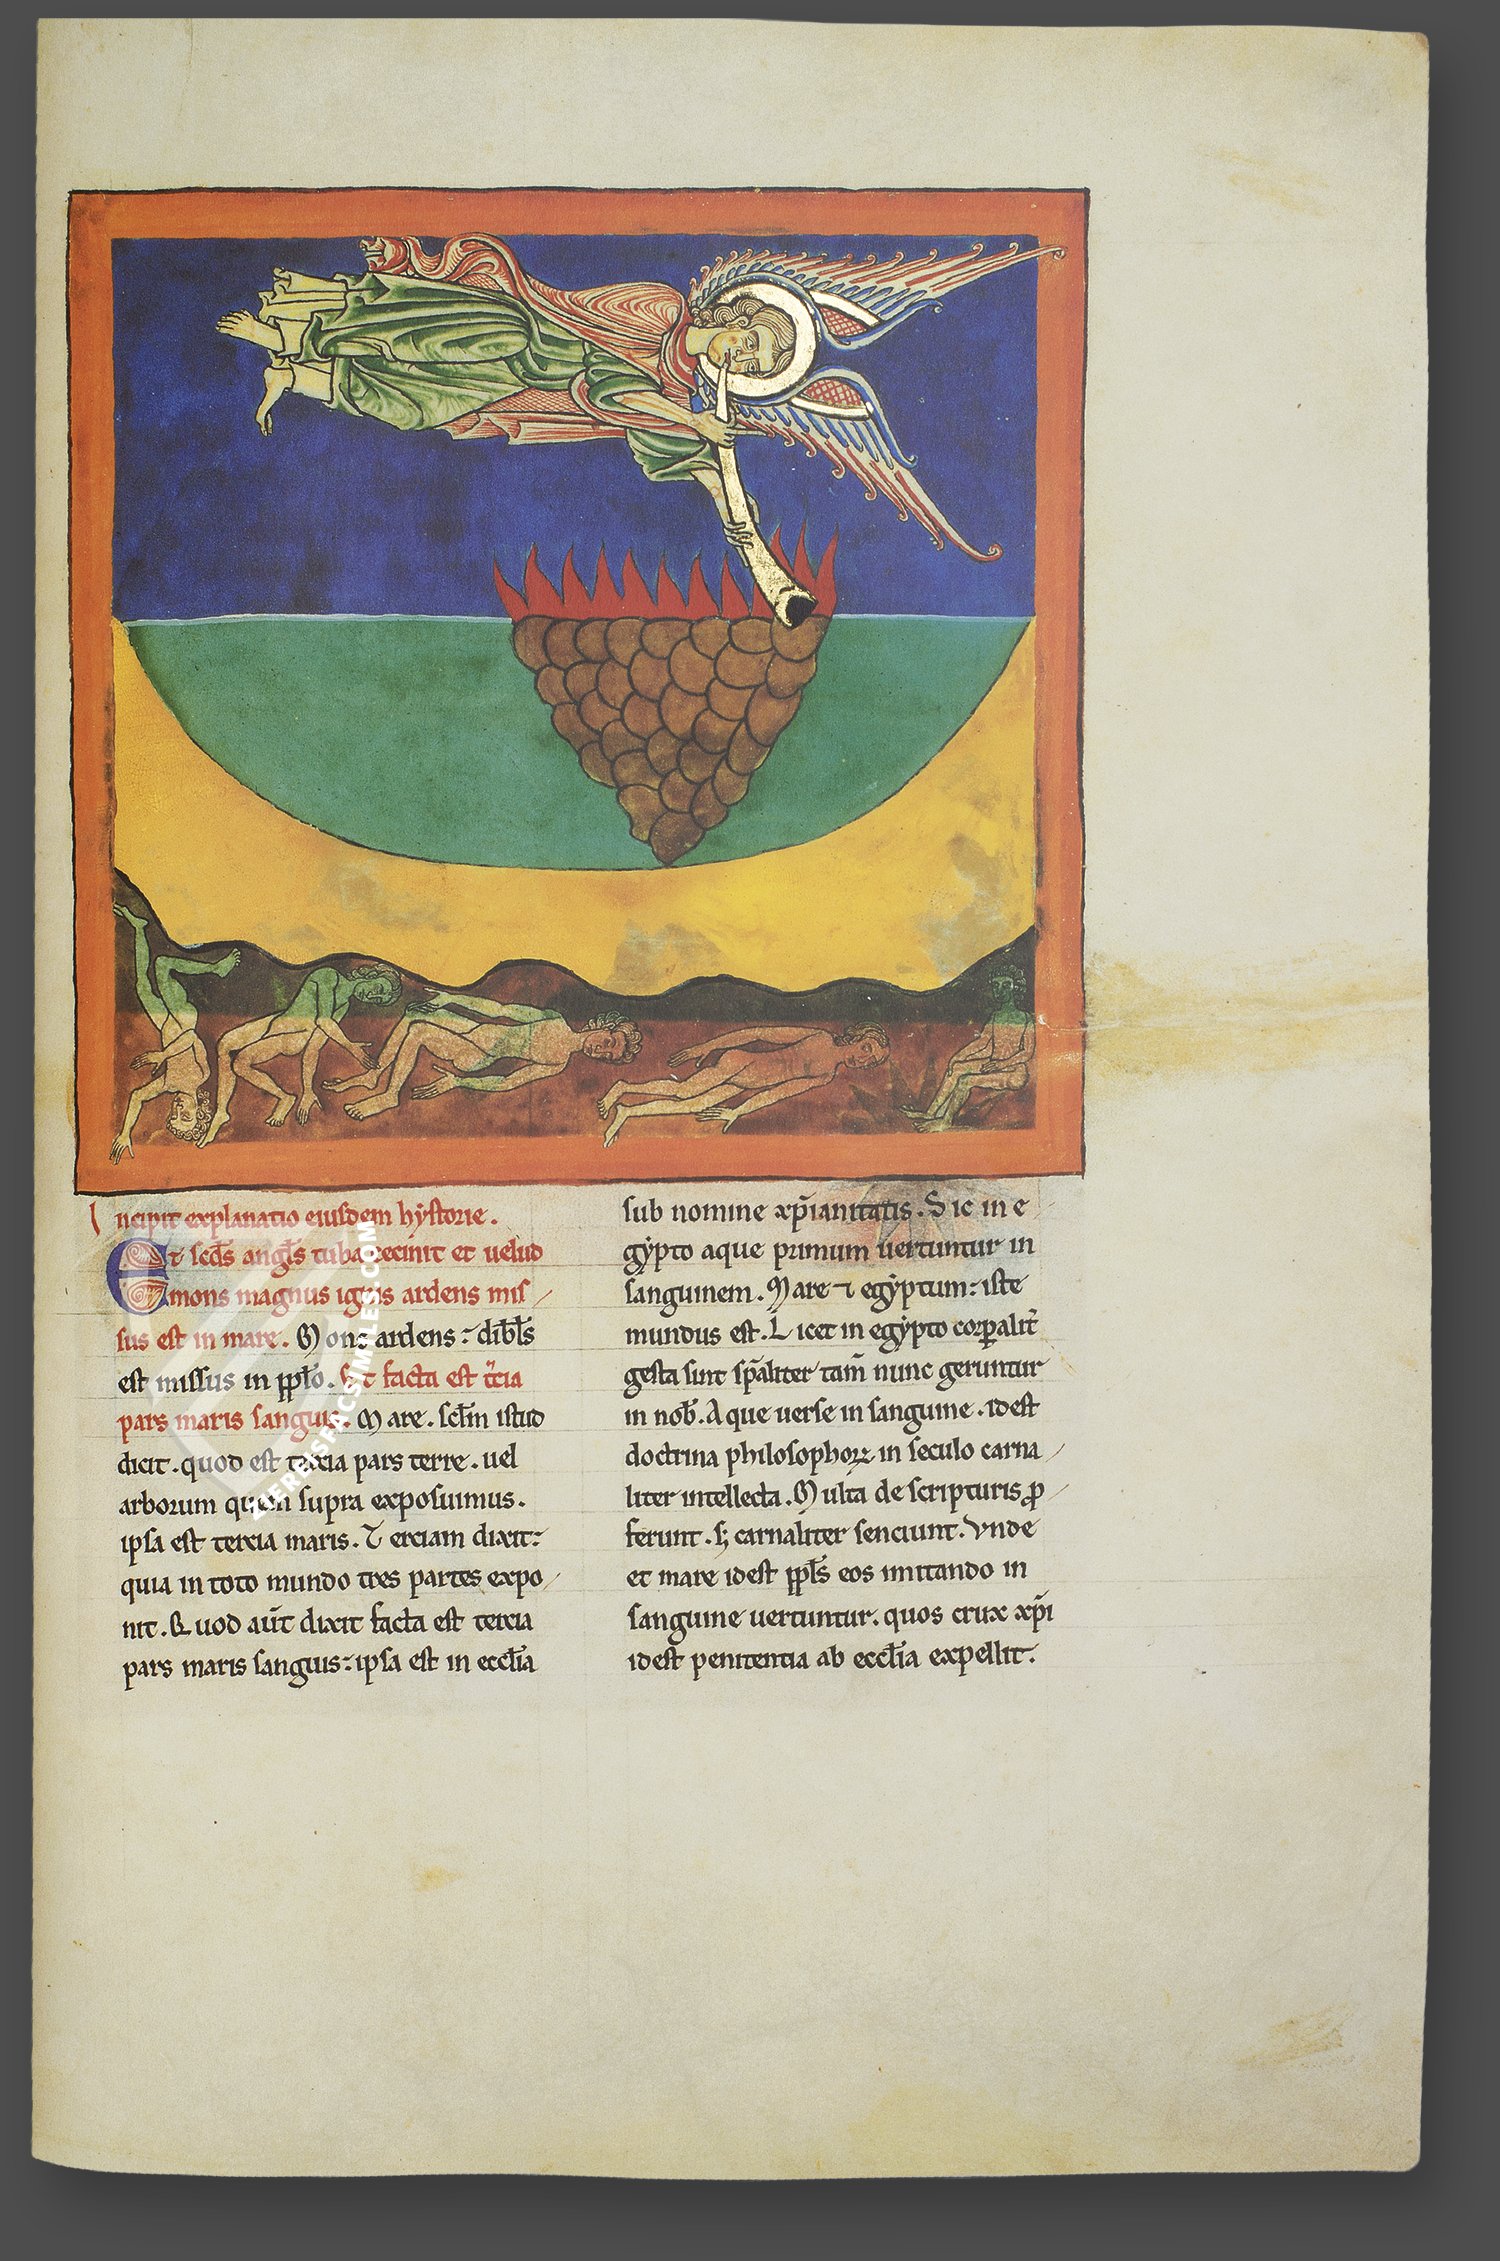 Incipit explanatio eiusdem hẏstorie.
Et scd̄s angl̄s tuba cecinit et uelud
mons magnus ignis ardens mis
sus est in mare. Mons ardens: dibl̄s
est missus in ppl̄o. Et facta est t̄cia
pars maris sanguis. Mare. scl̄m istud
dicit. quod est tercia pars terre. uel
arborum quam supra exposuimus.
ipsa est tercia maris. Terciam dixit:
quia in toto mundo tres partes expo
nit. Quod aūt dixit facta est tercia
pars maris sanguis: ipsa est in eccl̄ia
sub nomine xp̄ianitatis. Sic in e
gẏpto aque primum uertuntur in
sanguinem. Mare ⁊ egẏptum: iste
mundus est. Licet in egẏpto corꝑalit̄
gesta sint sp̄aliter tam̄ nunc geruntur
in nob̄. Aque uerse in sanguine. idest
doctrina philosophoꝝ in seculo carna
liter intellecta. Multa de scripturis ꝓ
ferunt. sꝫ carnaliter senciunt. Vnde
et mare idest ppl̄s eos imitando in
sanguine uertuntur. quos crux xp̄i
idest penitentia ab eccl̄ia expellit.
ZIEREISFACSIMILES.COM